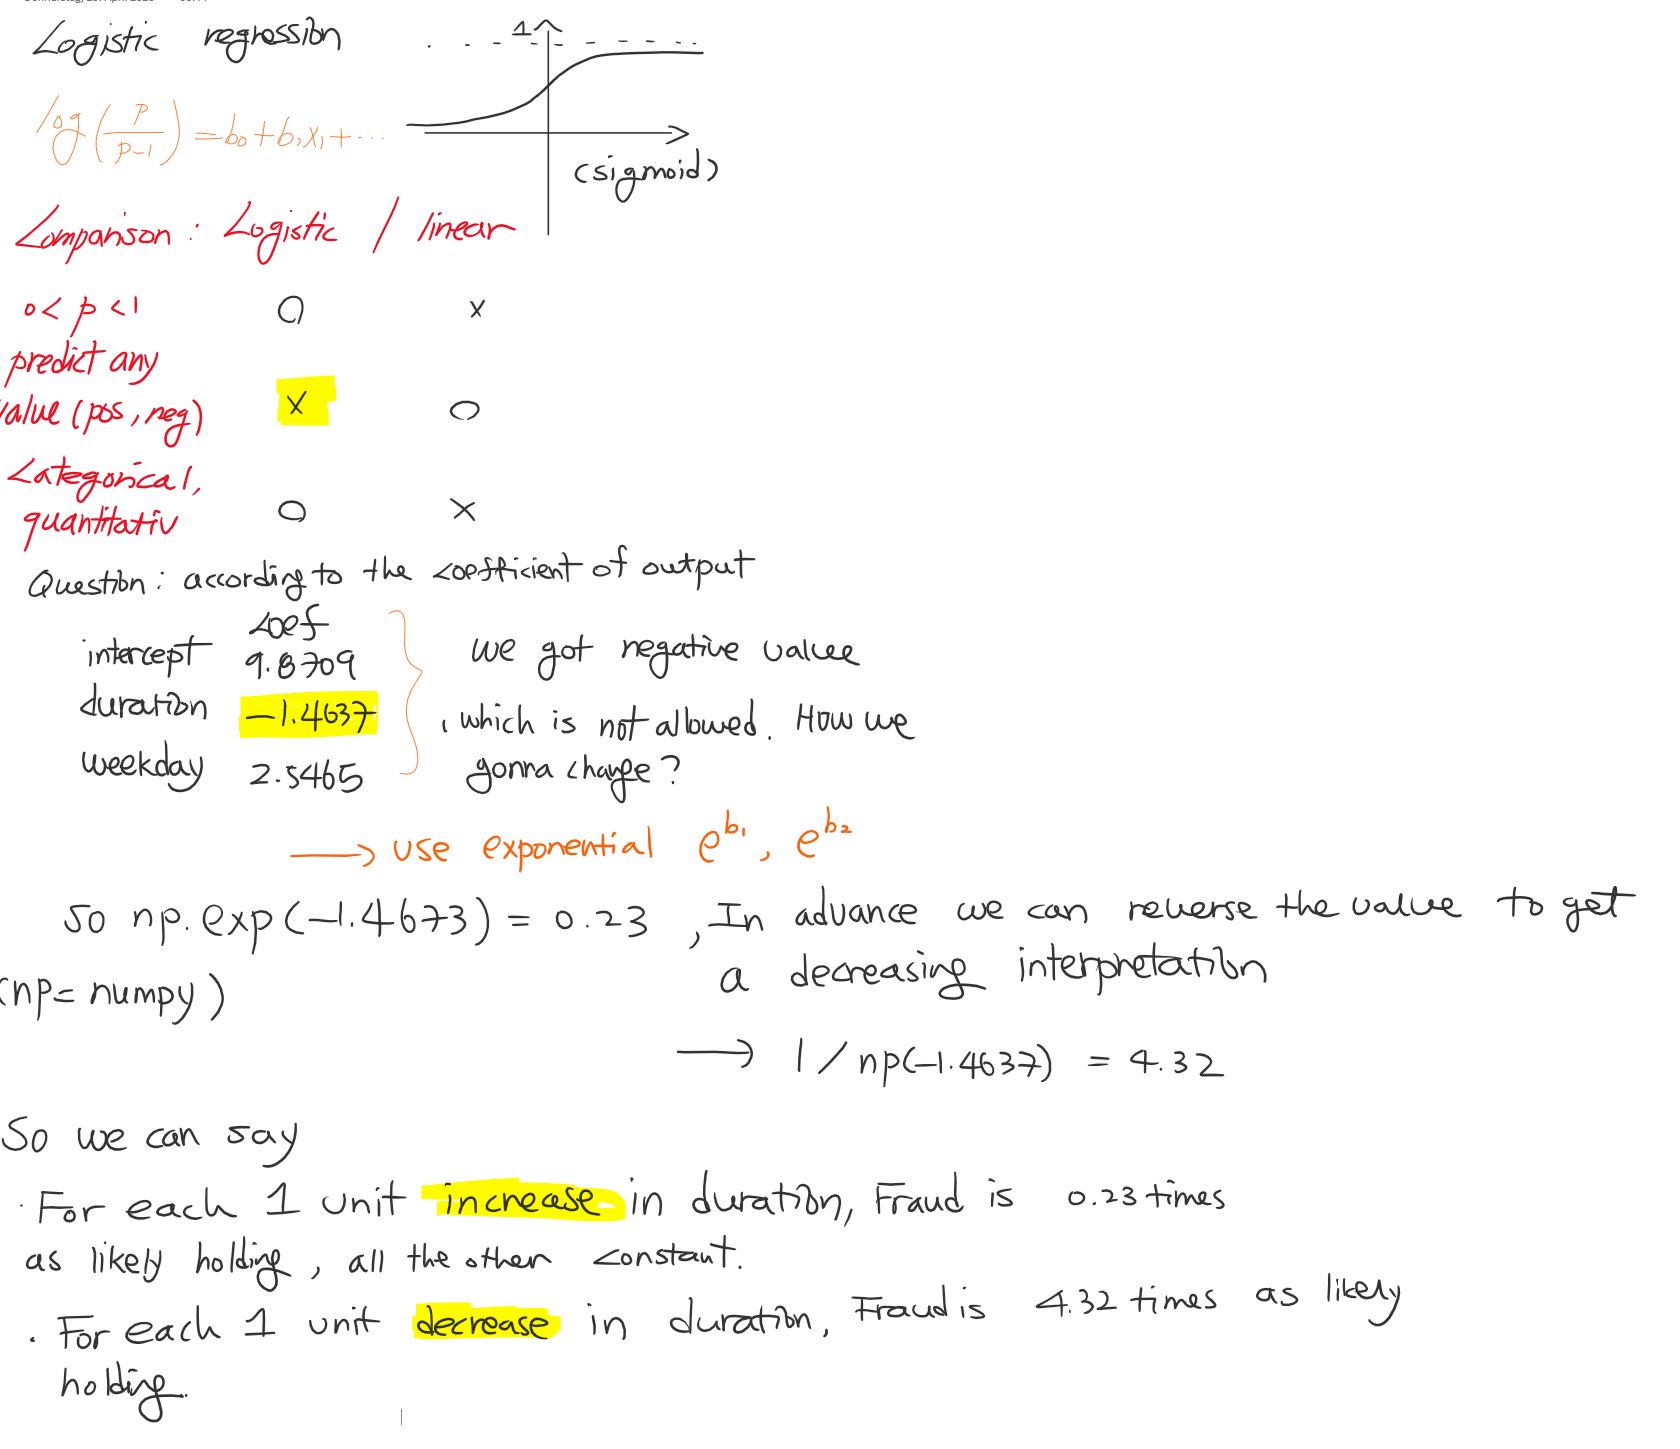 Logistic regression
1
log(p/p-1) = b0 + b1x1 + ...
(sigmoid)
Comparison : Logistic / linear
0 < p < 1 O x
predict any
value (pos, neg) x O
Categorical,
quantitativ O x
Question : according to the coefficient of output
coef
intercept 9.8709 we got negative value
duration -1.4637 , which is not allowed. How we
weekday 2.5465 gonna change?
→ use exponential e^b1, e^b2
so np.exp(-1.4673) = 0.23 , In advance we can reverse the value to get
(np= numpy) a decreasing interpretation
→ 1 / np(-1.4637) = 4.32
So we can say
· For each 1 unit increase in duration, Fraud is 0.23 times
as likely holding, all the other constant.
· For each 1 unit decrease in duration, Fraud is 4.32 times as likely
holding.